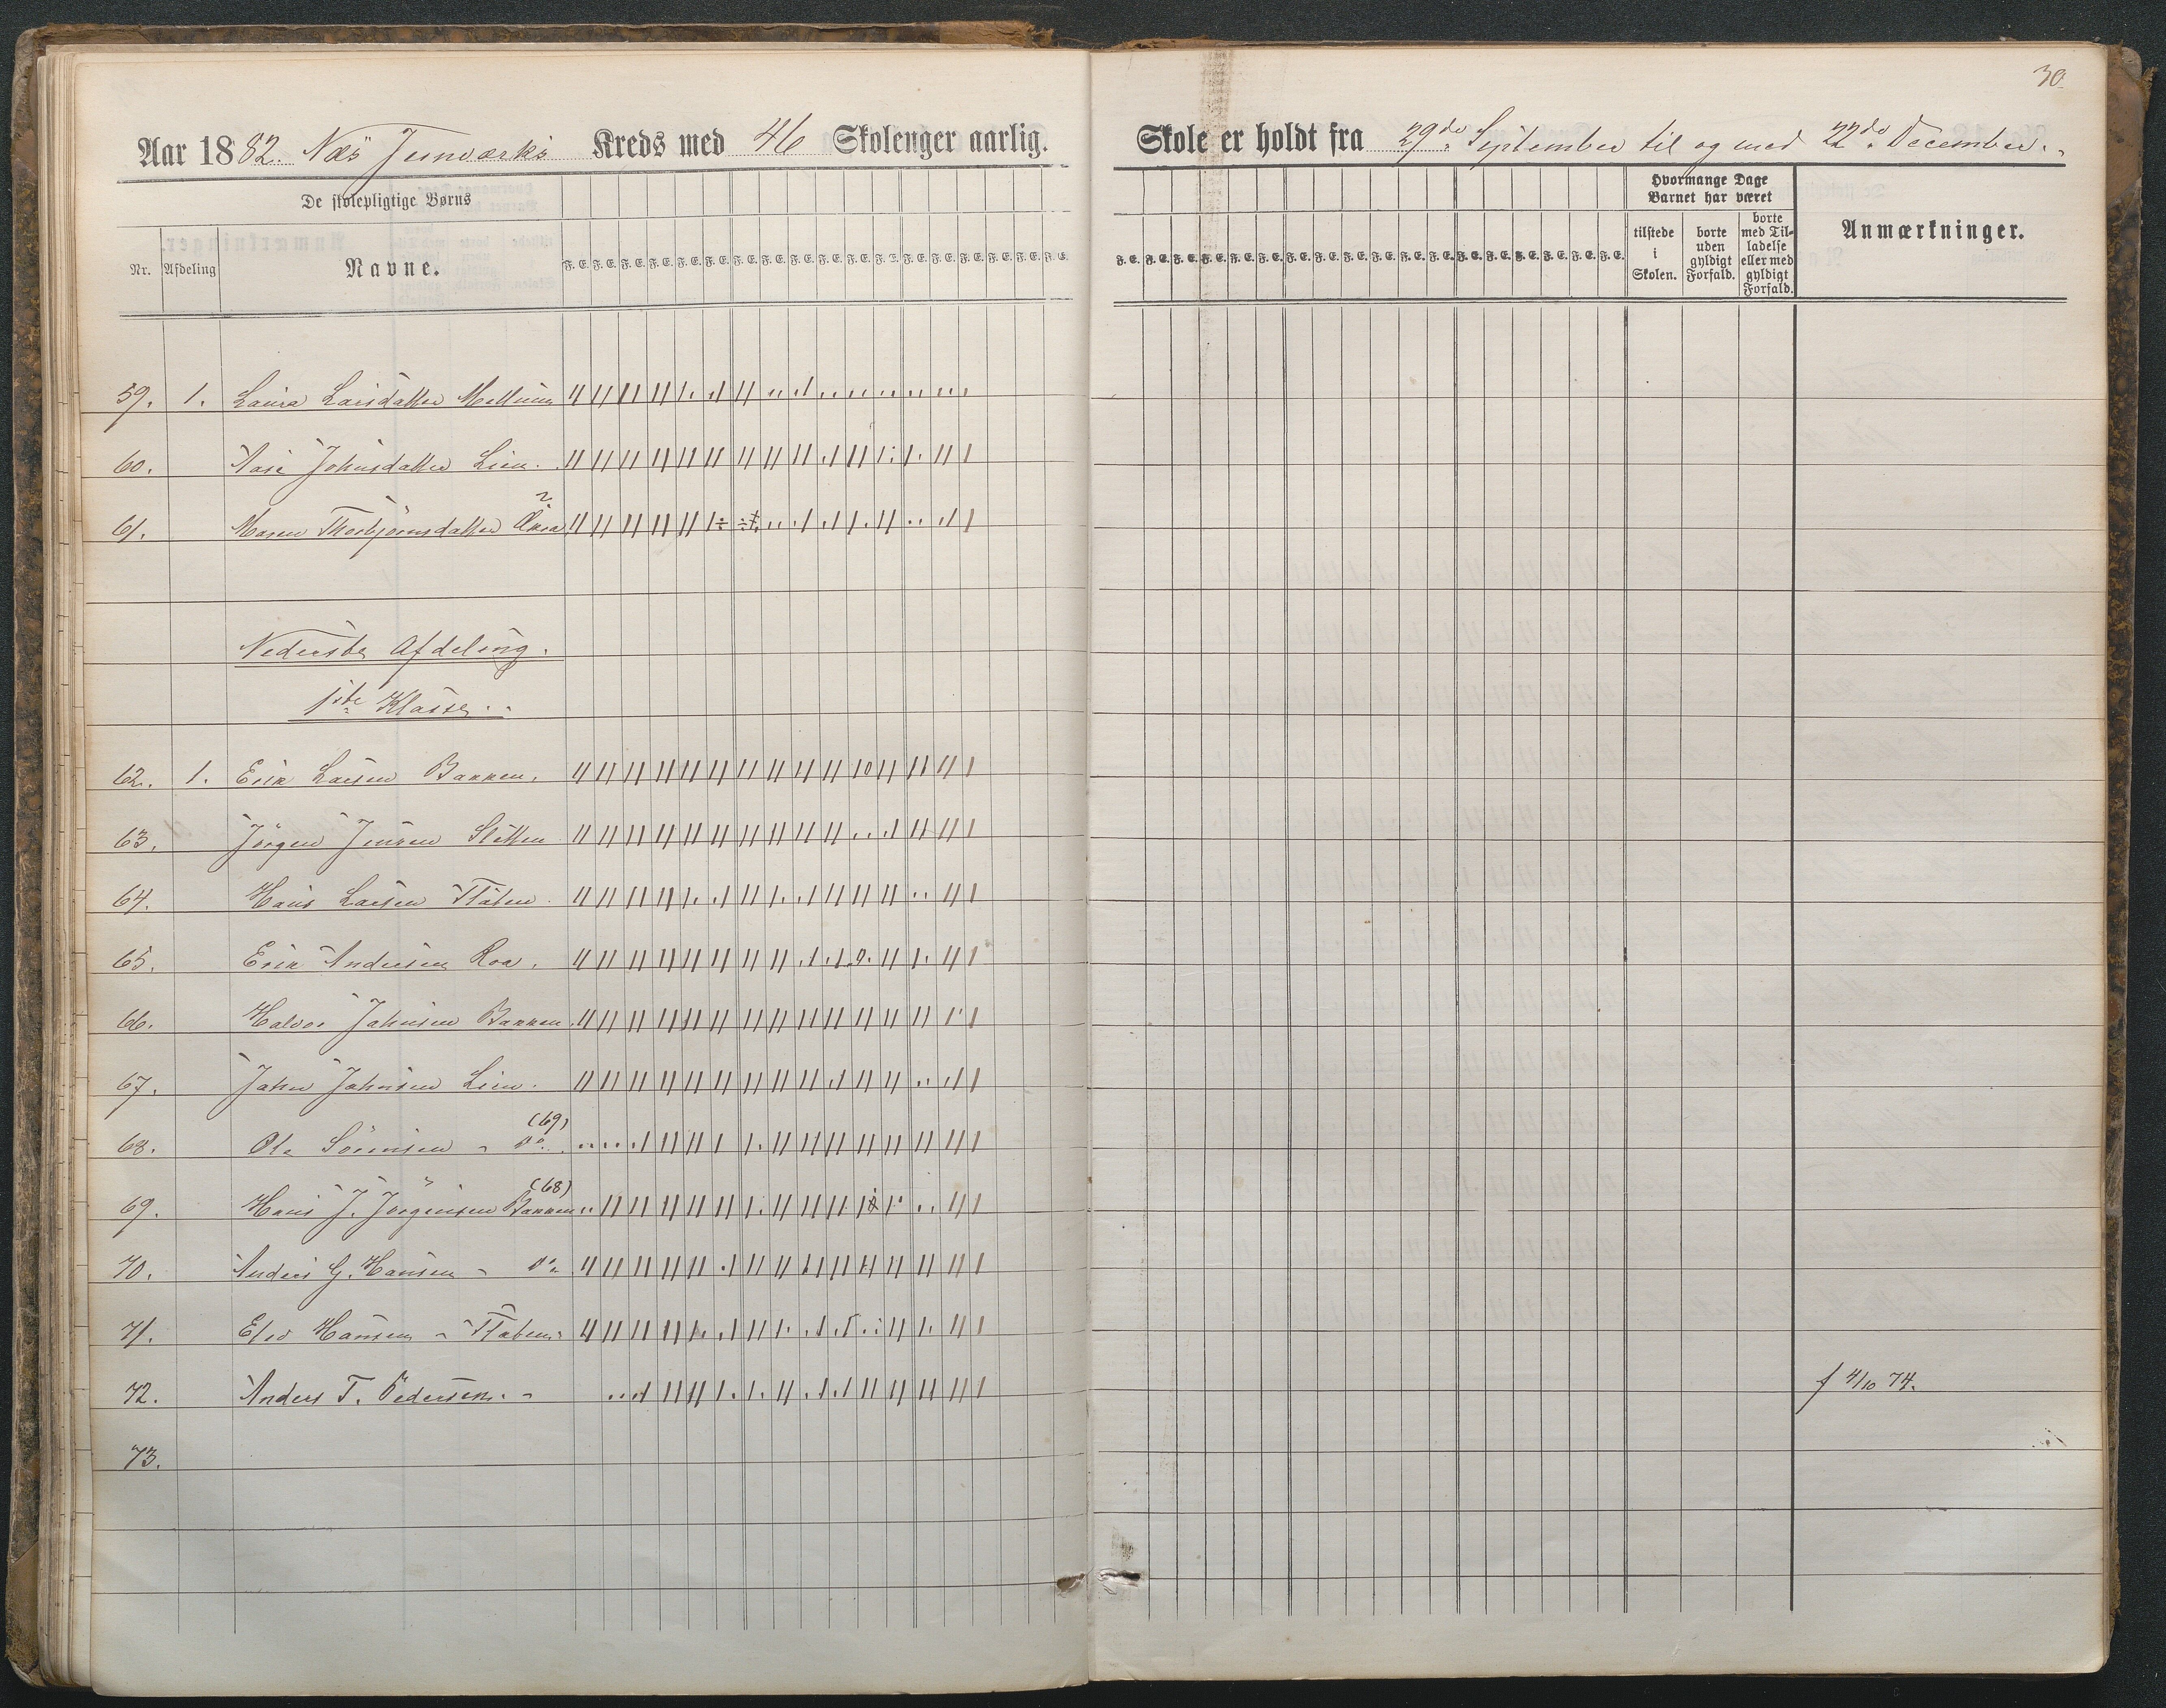 30.
Aar 1882. Næs Jernværks Kreds med 46 Skolenger aarlig.
Skole er holdt fra 29de September til og med 22de December.
De skolepligtige Børns
Nr. Afdeling Navne.
F. E. F. E. F. E. F. E. F. E. F. E. F. E. F. E. F. E. F. E. F. E. F. E. F. E. F. E. F. E. F. E. F. E. F. E.
F. E. F. E. F. E. F. E. F. E. F. E. F. E. F. E. F. E. F. E. F. E. F. E. F. E. F. E. F. E. F. E. F. E. F. E.
Hvormange Dage Barnet har været
tilstede i Skolen.
borte uden gyldigt Forfald.
borte med Tilladelse eller med gyldigt Forfald.
Anmærkninger.
59. 1. Laura Larsdatter
60. Aase Johnsdatter Lien.
61. Maren Thorbjørnsdatter
Nederste Afdeling.
1ste Klasse.
62. 1. Erik Larsen Bakken.
63. Jörgen Jensen Sletten
64. Hans Larsen Flaten.
65. Erik Andersen Roa.
66. Halvor Jahnsen Bakken.
67. Jahn Jahnsen Lien.
68. Ole Sörensen - do. (69)
69. Hans J. Jörgensen Bakken (68)
70. Anders G. Hansen - do
71. Hansen - Flaten.
72. Anders T. Pedersen. - f 4/10 74.
73.